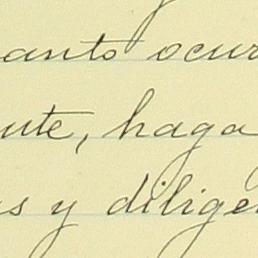 anto ocur
ute, haga
s y dilige